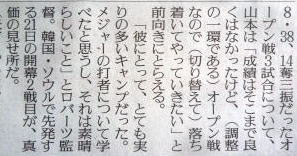 8・38、14奪三振だったオ
ープン戦3試合について、
山本は「成績はそこまで良
くはなかったけど、(調整
の一環である)オープン戦
なので(切り替えて)落ち
着いてやっていきたい」と
前向きにとらえる。
「彼にとって、とても実
りの多いキャンプだった。
メジャーの打者について学
べたと思うし、それは素晴
らしいこと」とロバーツ監
督。韓国・ソウルで先発す
る21日の開幕2戦目が、真
価の見せ所だ。